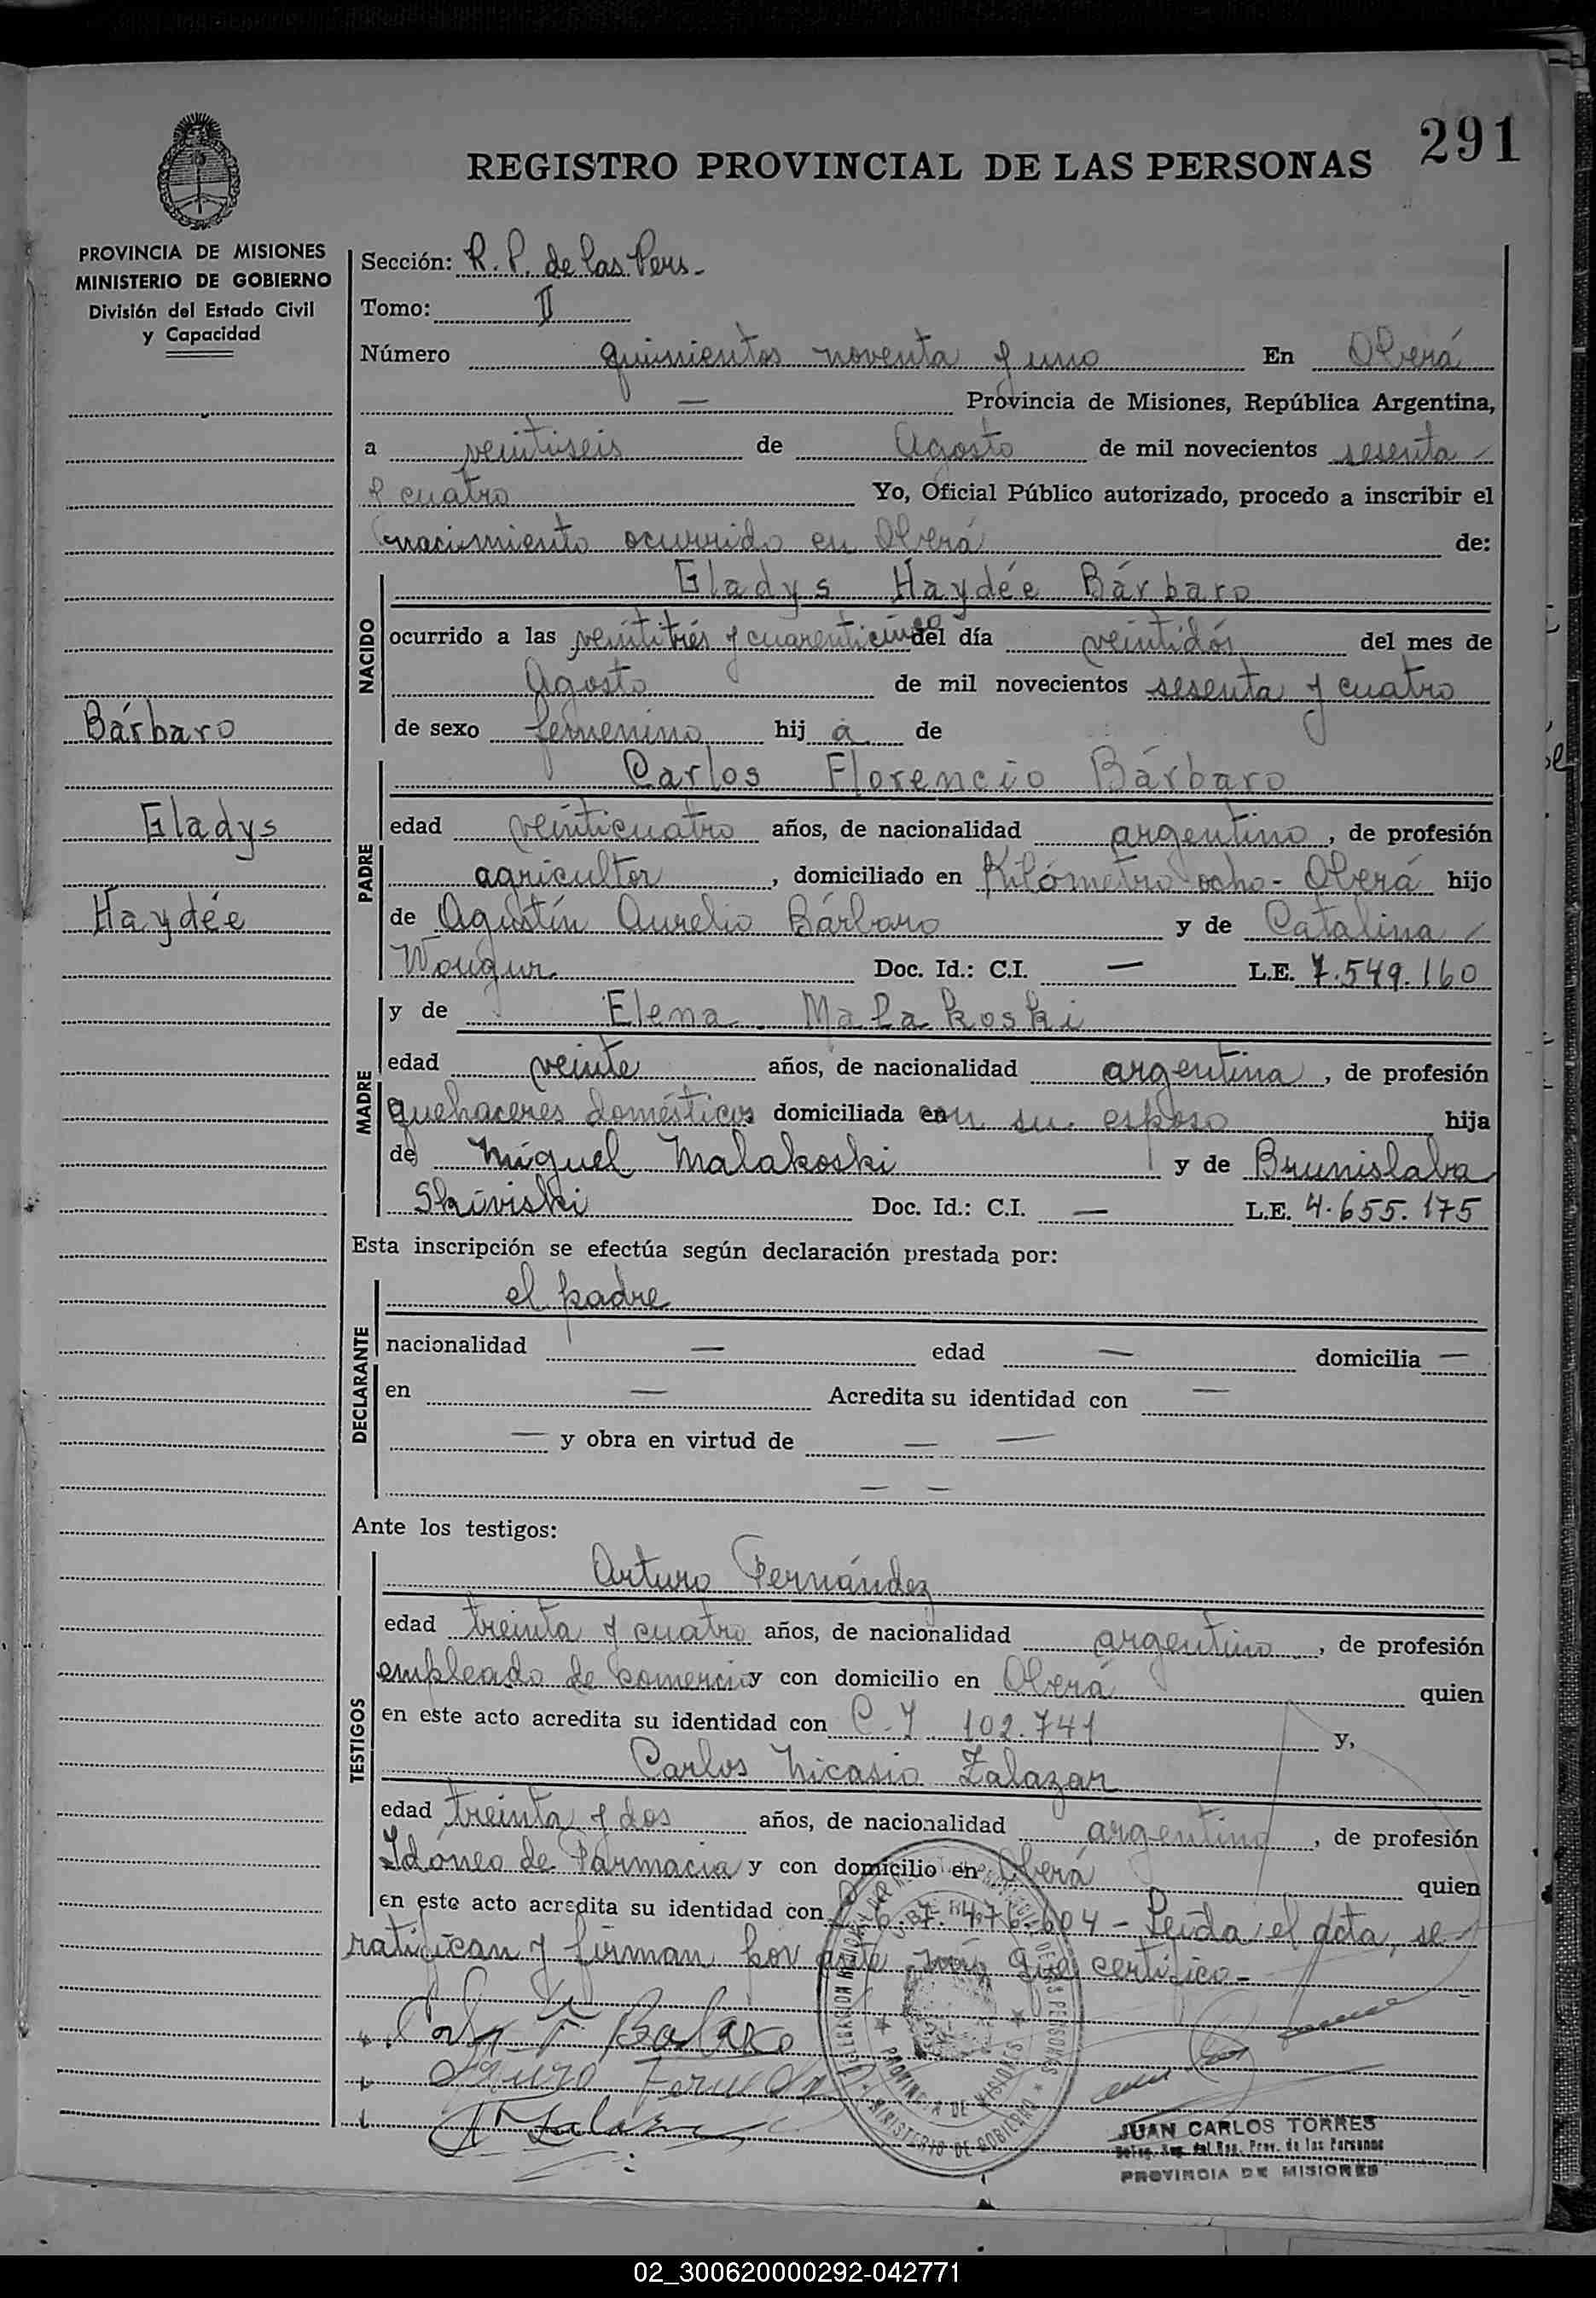 291
REGISTRO PROVINCIAL DE LAS PERSONAS
PROVINCIA DE MISIONES
MINISTERIO DE GOBIERNO
División del Estado Civil
y Capacidad
Bárbaro
Gladys
Haydée
Sección: R. P. de las Pers.-
Tomo: II
Número quinientos noventa y uno En Oberá
— Provincia de Misiones, República Argentina,
a veintiseis de Agosto de mil novecientos sesenta
y cuatro Yo, Oficial Público autorizado, procedo a inscribir el
nacimiento ocurrido en Oberá de:
NACIDO
Gladys Haydée Bárbaro
ocurrido a las veintitrés y cuarenticinco del día veintidós del mes de
Agosto de mil novecientos sesenta y cuatro
de sexo femenino hij a de
PADRE
Carlos Florencio Bárbaro
edad veinticuatro años, de nacionalidad argentino, de profesión
agricultor, domiciliado en Kilómetro ocho - Oberá hijo
de Agustín Aurelio Bárbaro y de Catalina
Wougur Doc. Id.: C.I. — L.E. 7.549.160
MADRE
y de Elena Malakoski
edad veinte años, de nacionalidad argentina, de profesión
quehaceres domésticos domiciliada en con su esposo hija
de Miguel Malakoski y de Brunislaba
Skiviski Doc. Id.: C.I. — L.E. 4.655.175
Esta inscripción se efectúa según declaración prestada por:
DECLARANTE
el padre
nacionalidad — edad — domicilia —
en — Acredita su identidad con —
— y obra en virtud de — —
— —
Ante los testigos:
TESTIGOS
Arturo Fernández
edad treinta y cuatro años, de nacionalidad argentino, de profesión
empleado de comercio y con domicilio en Oberá quien
en este acto acredita su identidad con C. I. 102.741 y,
Carlos Nicasio Zalazar
edad treinta y dos años, de nacionalidad argentino, de profesión
Idóneo de Farmacia y con domicilio en Oberá quien
en este acto acredita su identidad con 7.476.604 - Leída el acta, se
ratifican y firman por ante mí que certifico.-
PROVINCIA DE MISIONES
MINISTERIO DE GOBIERNO
JUAN CARLOS TORRES
Deleg. Reg. del Reg. Prov. de las Personas
PROVINCIA DE MISIONES
02_300620000292-042771